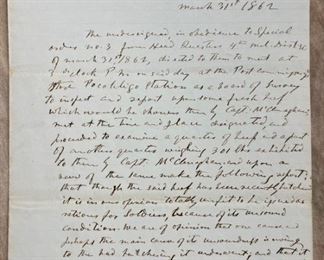 March 31st 1862
The undersigned, in obedience to Special
order no. 3 from Head Quarters 4th mil. Dist. SC
of march 31st 1862, directed to them to meet at
o'clock P.M. on said day at the Post commissary
Pocotaligo Station as a Board of Survey
to inspect and report upon some fresh beef
which would be shown them by Capt. McClenaghan
met at the time and place designated and
proceeded to examine a quarter of beef and a part
of another quarter weighing 301 lbs exhibited
to them by Capt. McClenaghan, and upon a
view of the same make the following report:
that though the said beef has been recently butchered
it is in our opinion totally unfit to be issued as
rations for soldiers, because of its unsound
condition. We are of opinion that one cause and
perhaps the main cause of its unsoundness is owing
to the bad butchering it underwent, and that it